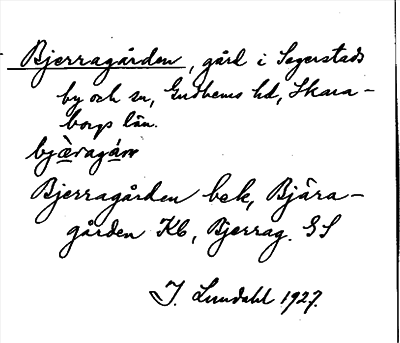 Bjerragården, gård i Segerstads
by och sn, Gudhems hd, Skara-
borgs län.
bjæ̀ragán
Bjerragården bek, Bjära-
gården Kb, Bjerrag. GS
I. Lundahl 1927.